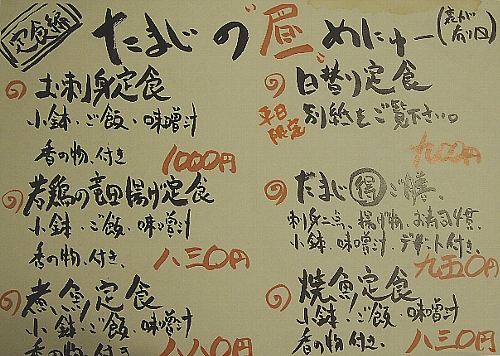 定食編
たまじの昼めにゅー(裏が有り〼)
お刺身定食
小鉢・ご飯・味噌汁
香の物、付き
1000円
若鶏の竜田揚げ定食
小鉢・ご飯・味噌汁
香の物、付き、
八三0円
煮魚定食
小鉢・ご飯・味噌汁
香の物、付き
八八0円
日替り定食
平日限定
別紙をご覧下さい。
たまじ得ご膳、
刺身二点、揚げ物、お寿司4貫、
小鉢・味噌汁・デザート付き、
九五0円
焼魚定食
小鉢・ご飯・味噌汁
香の物、付き
八三0円